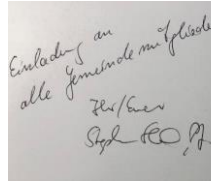 Einladung an
alle Gemeindemitglieder
Ihr/Euer
Stephan